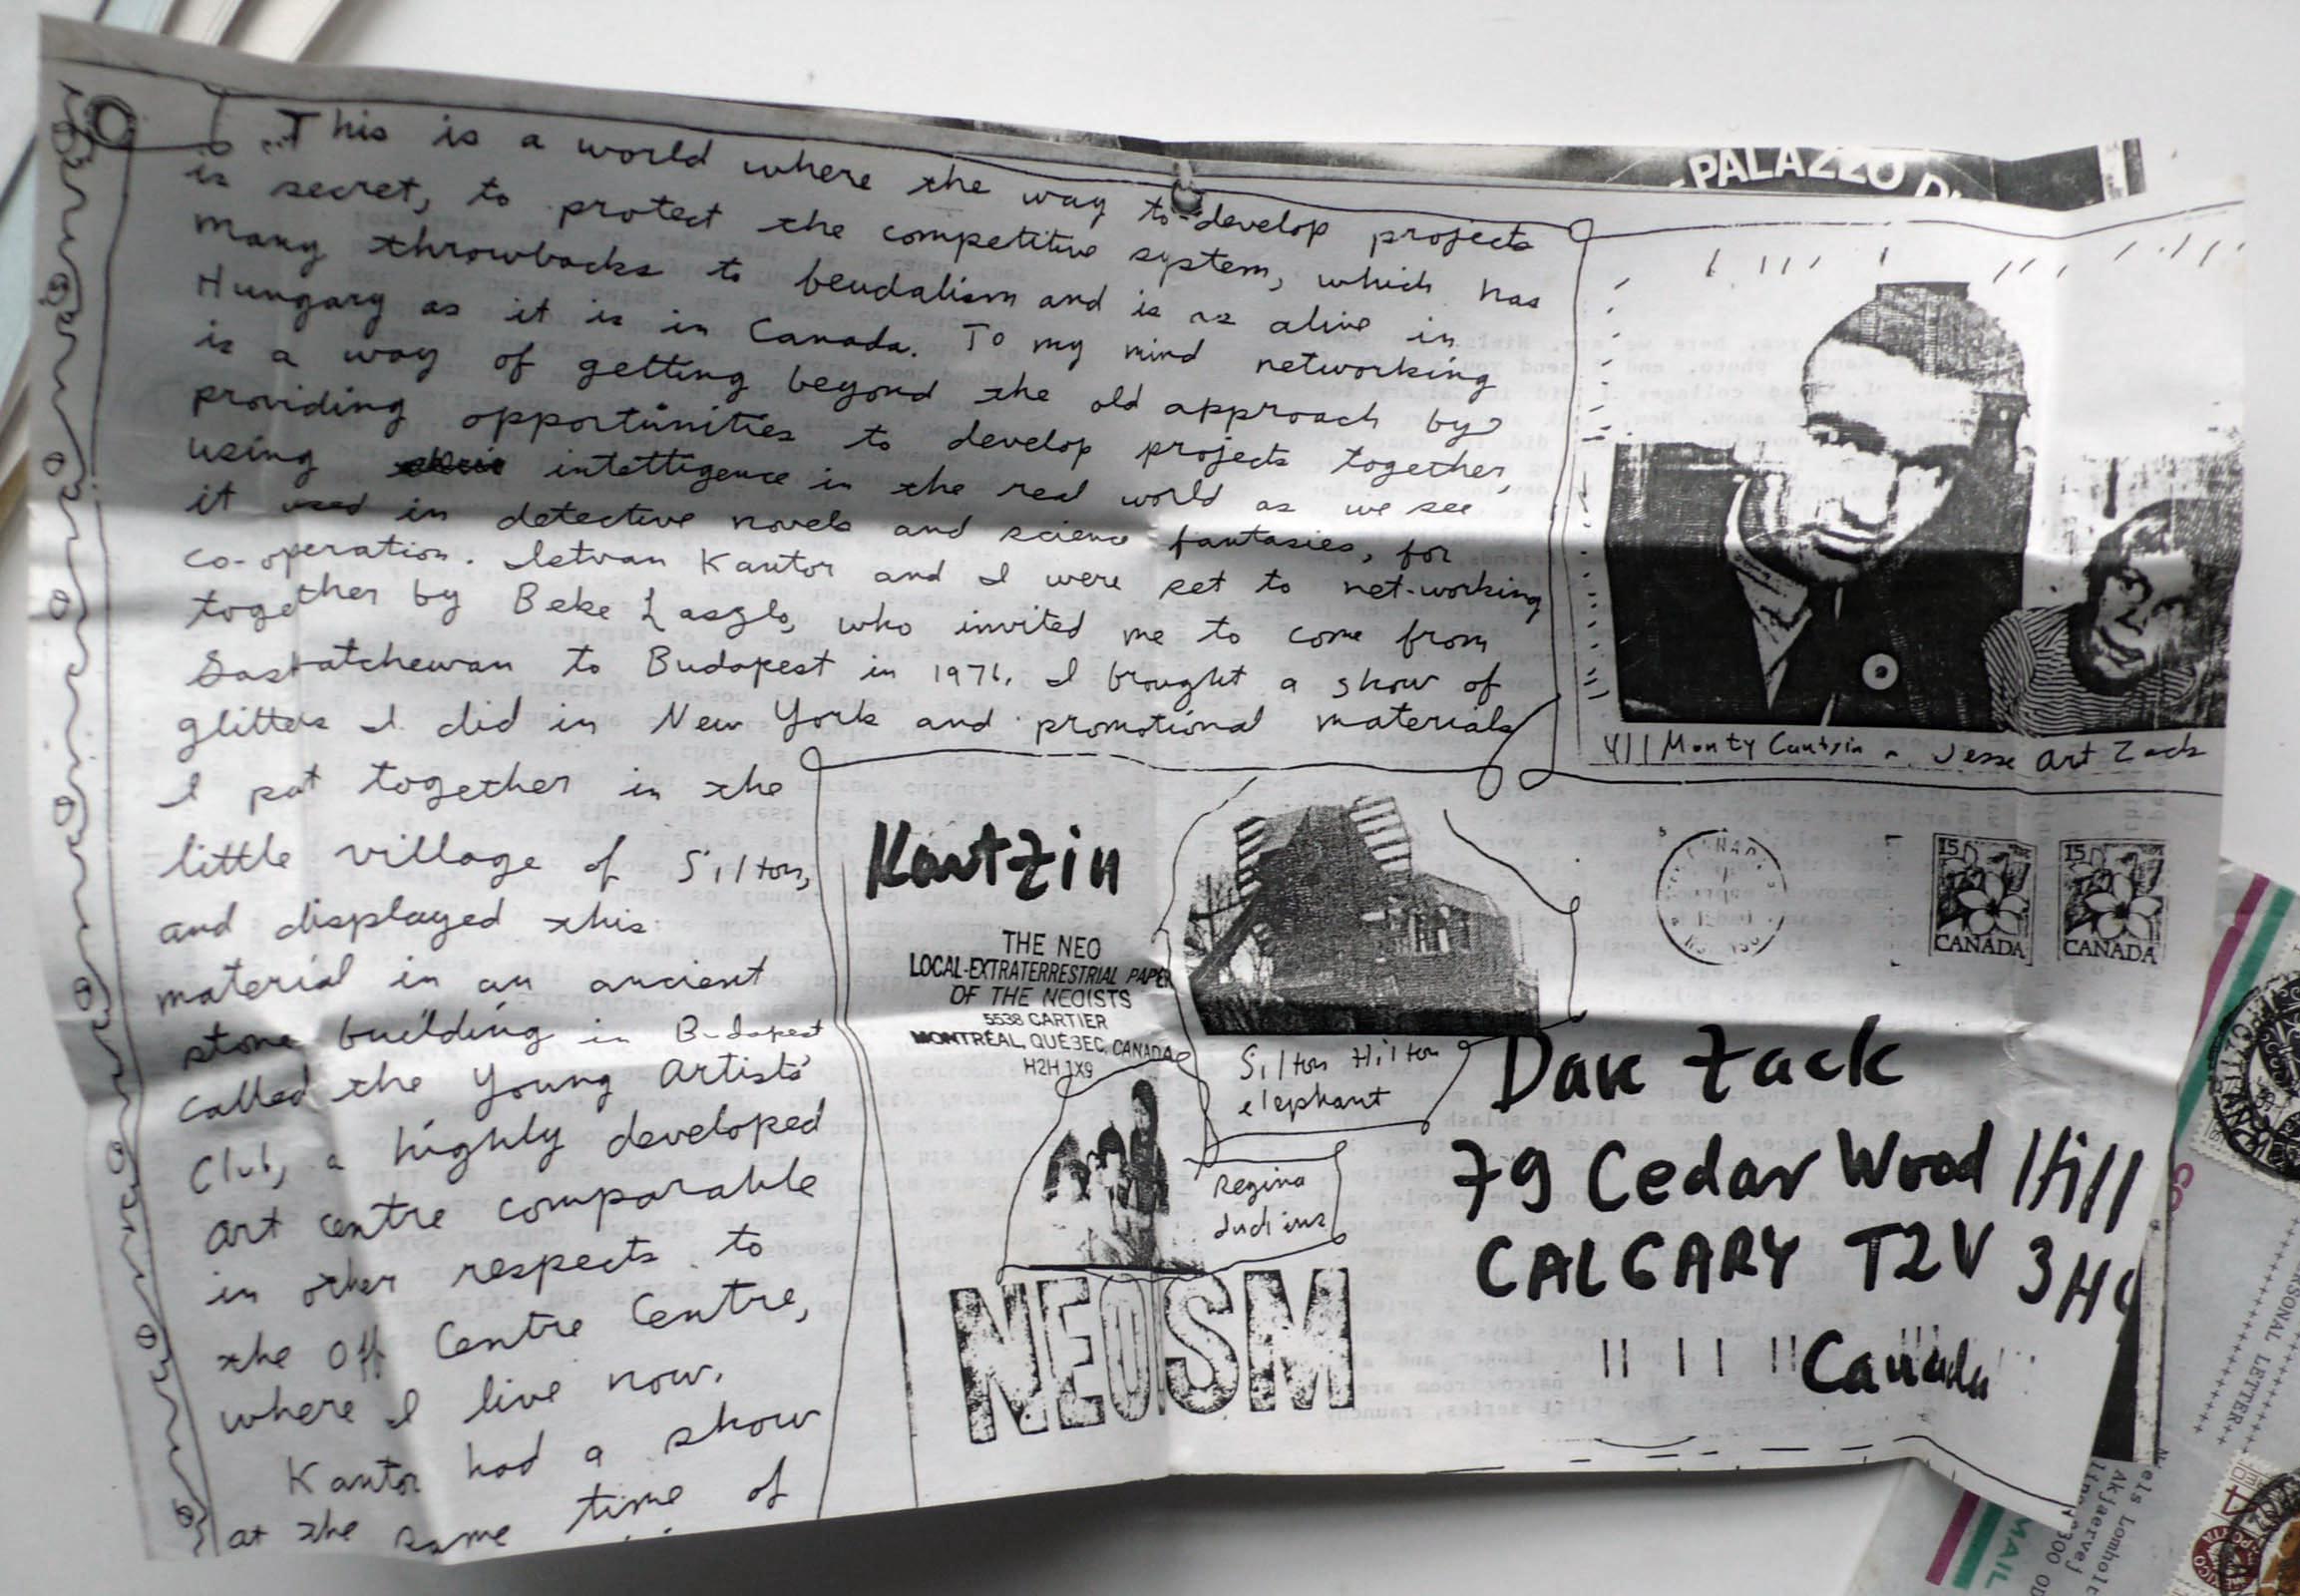 This is a world where the way to develop projects
is secret, to protect the competitive system, which has
many throwbacks to feudalism and is as alive in
Hungary as it is in Canada. To my mind networking
is a way of getting beyond the old approach by
providing opportunities to develop projects together,
using intelligence in the real world as we see
it used in detective novels and science fantasies, for
co-operation. Istvan Kantor and I were set to net-working
together by Beke Laszlo, who invited me to come from
Saskatchewan to Budapest in 1976. I brought a show of
glitters I did in New York and promotional materials
I put together in the
little village of Silton,
and displayed this
material in an ancient
stone building in Budapest
called the Young Artists'
Club, a highly developed
art centre comparable
in other respects to
the Off Centre Centre,
where I live now.
Kantor had a show
at the same time of
PALAZZO D
Monty Cantsin Jesse Art Zack
Kantzin
THE NEO
LOCAL-EXTRATERRESTRIAL PAPER
OF THE NEOISTS
5538 CARTIER
MONTRÉAL, QUÉBEC, CANADA
H2H 1X9
Silton Hilton
elephant
Regina
NEOISM
15
CANADA
15
CANADA
Dave Zack
79 Cedar Wood Hill
CALGARY T2V 3H
Canada
PERSONAL LETTER
Niels Lomholt
Akkjaervej
8300 OD
MAIL